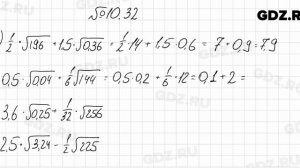 №10.32 GDZ.RU
) 1/2 · √196 + 1,5 · √0,36 + 1/2 · 14 + 1,5 · 0,6 = 7 + 0,9 = 7,9
0,5 · √0,04 + 1/6 √144 = 0,5 · 0,2 + 1/6 · 12 = 0,1 + 2 =
3,6 · √0,25 + 1/32 · √256
2,5 · √3,24 - 1/2 √225
GDZ.RU